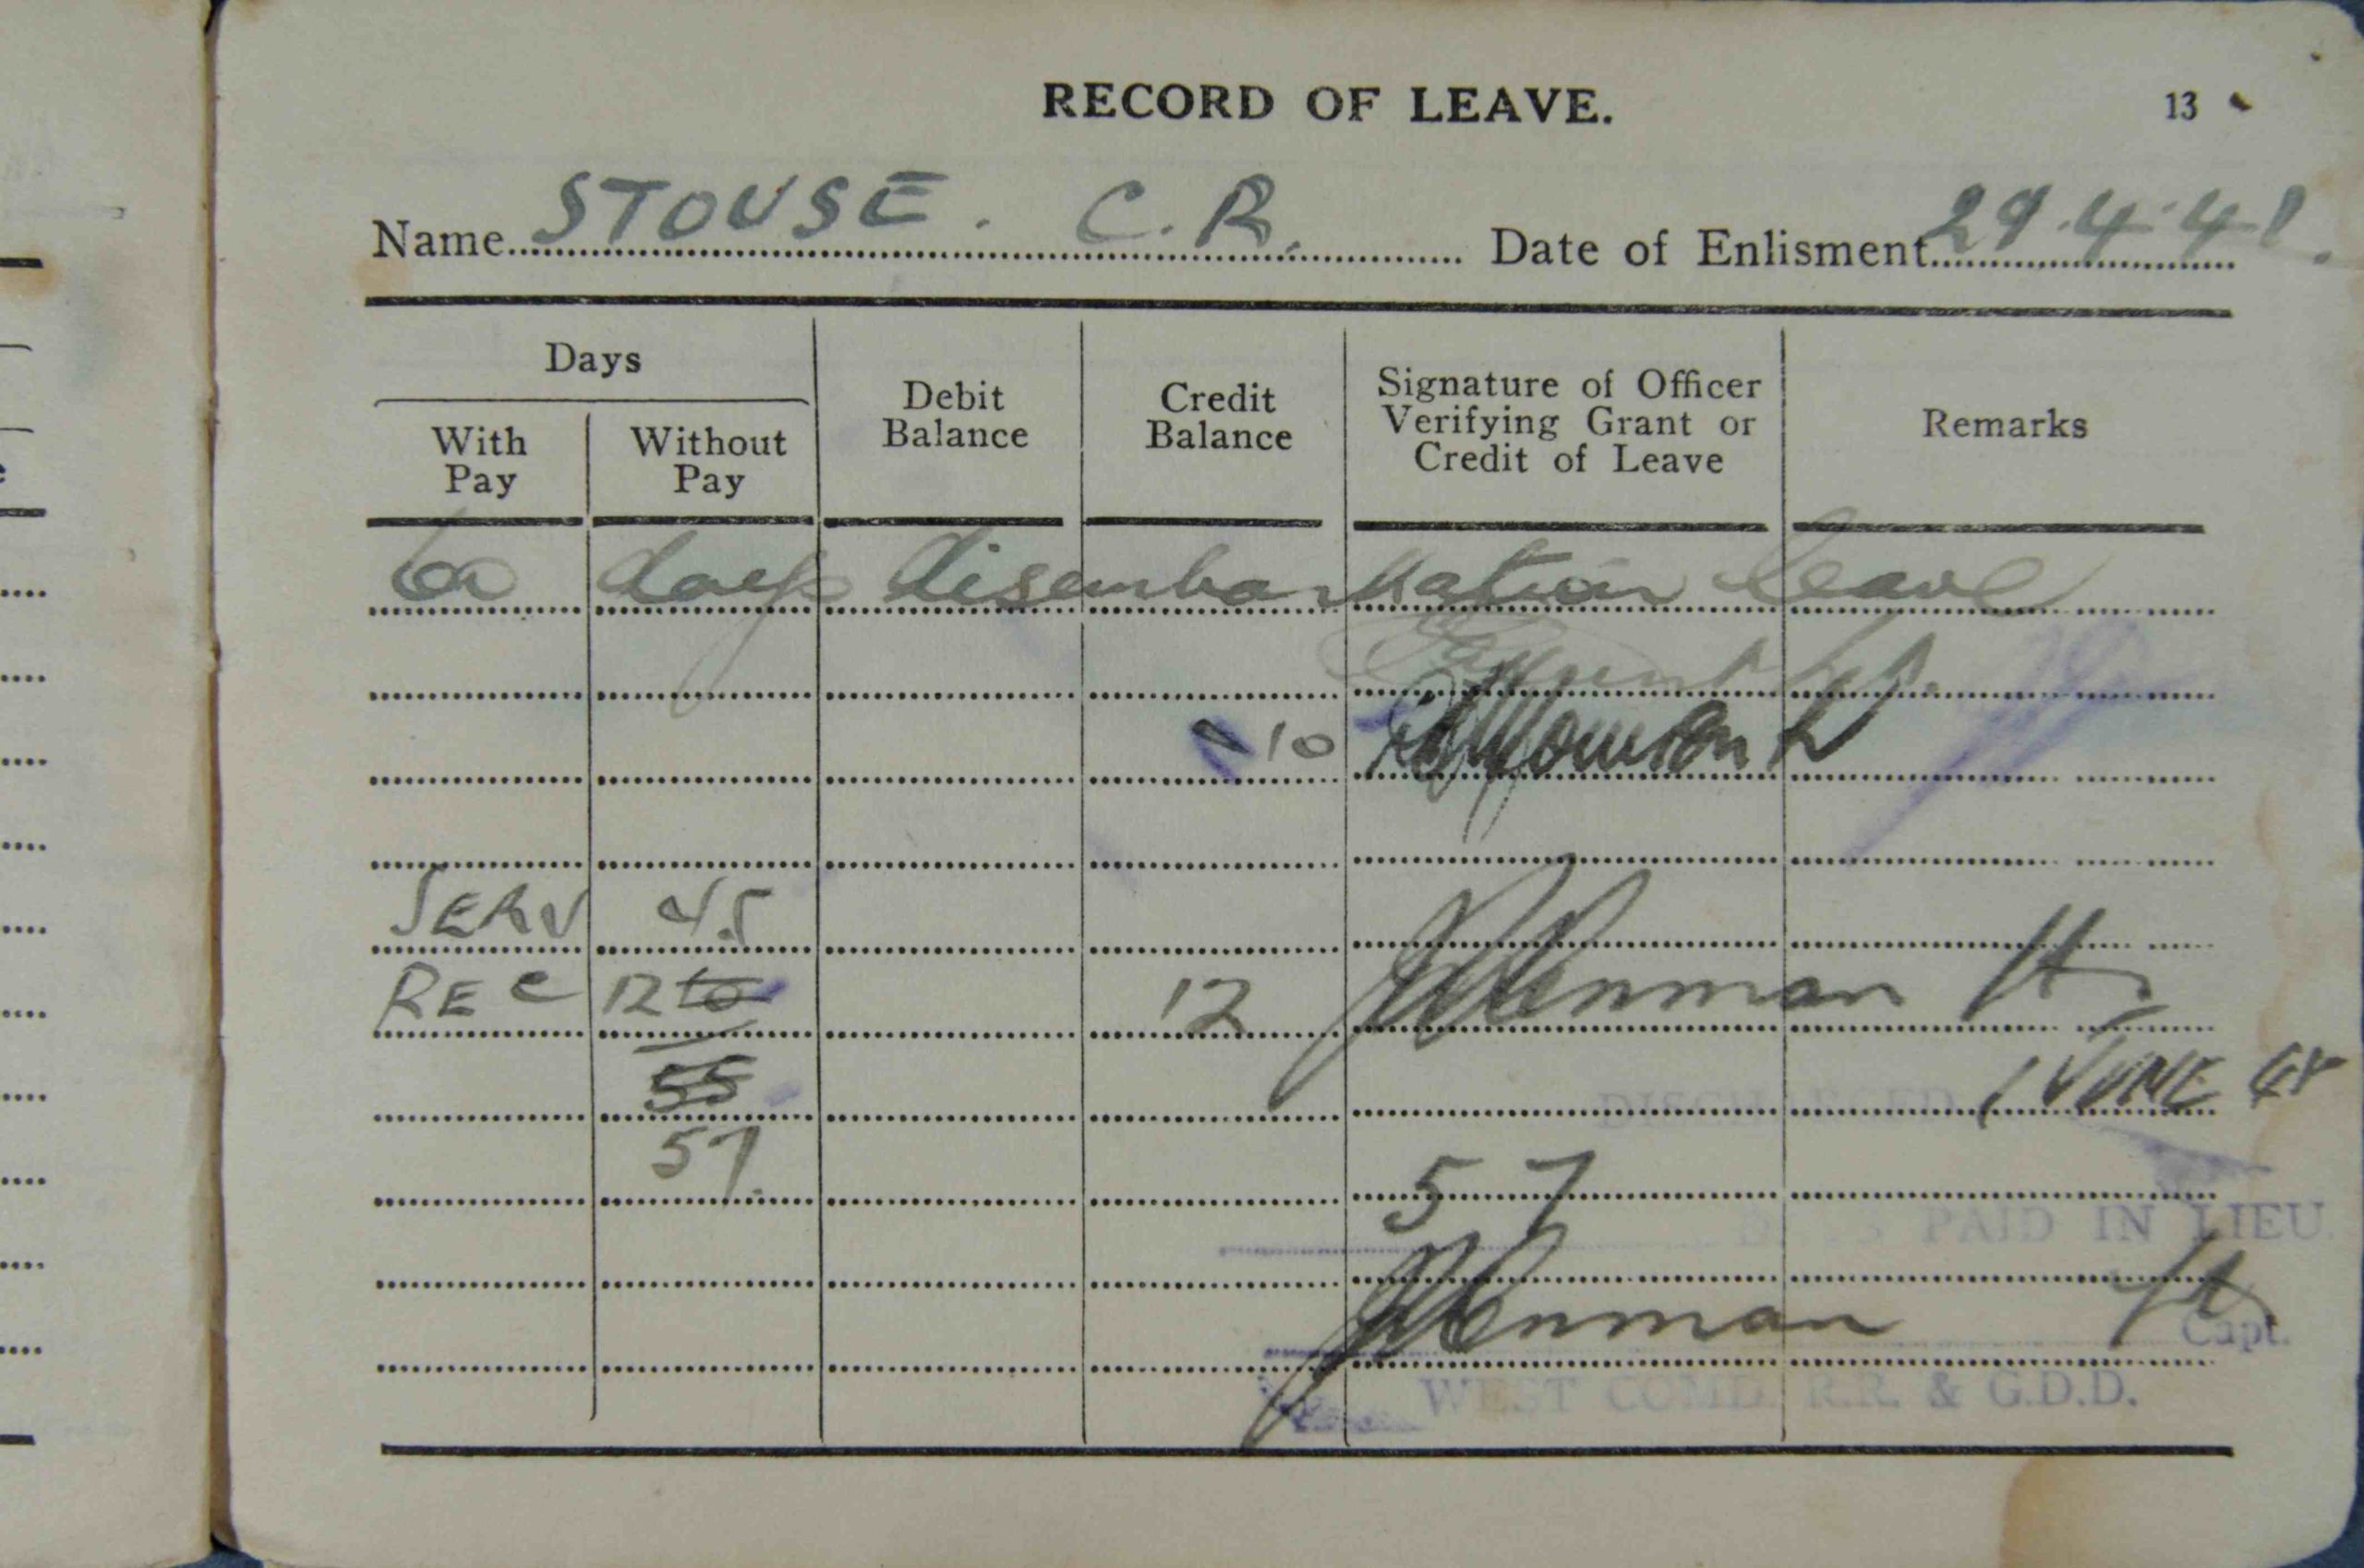 RECORD OF LEAVE. 13
Name STOUSE. C.R. Date of Enlisment 29.4.41.
Days
With Pay
Without Pay
Debit Balance
Credit Balance
Signature of Officer Verifying Grant or Credit of Leave
Remarks
days disembarkation leave
10
SERV 45
REC 12 10 12 Penman Lt.
55 DISCHARGED 1 JUNE
57. 57
DAYS PAID IN LIEU.
Penman Lt
Capt.
WEST COMD. R.R. & G.D.D.